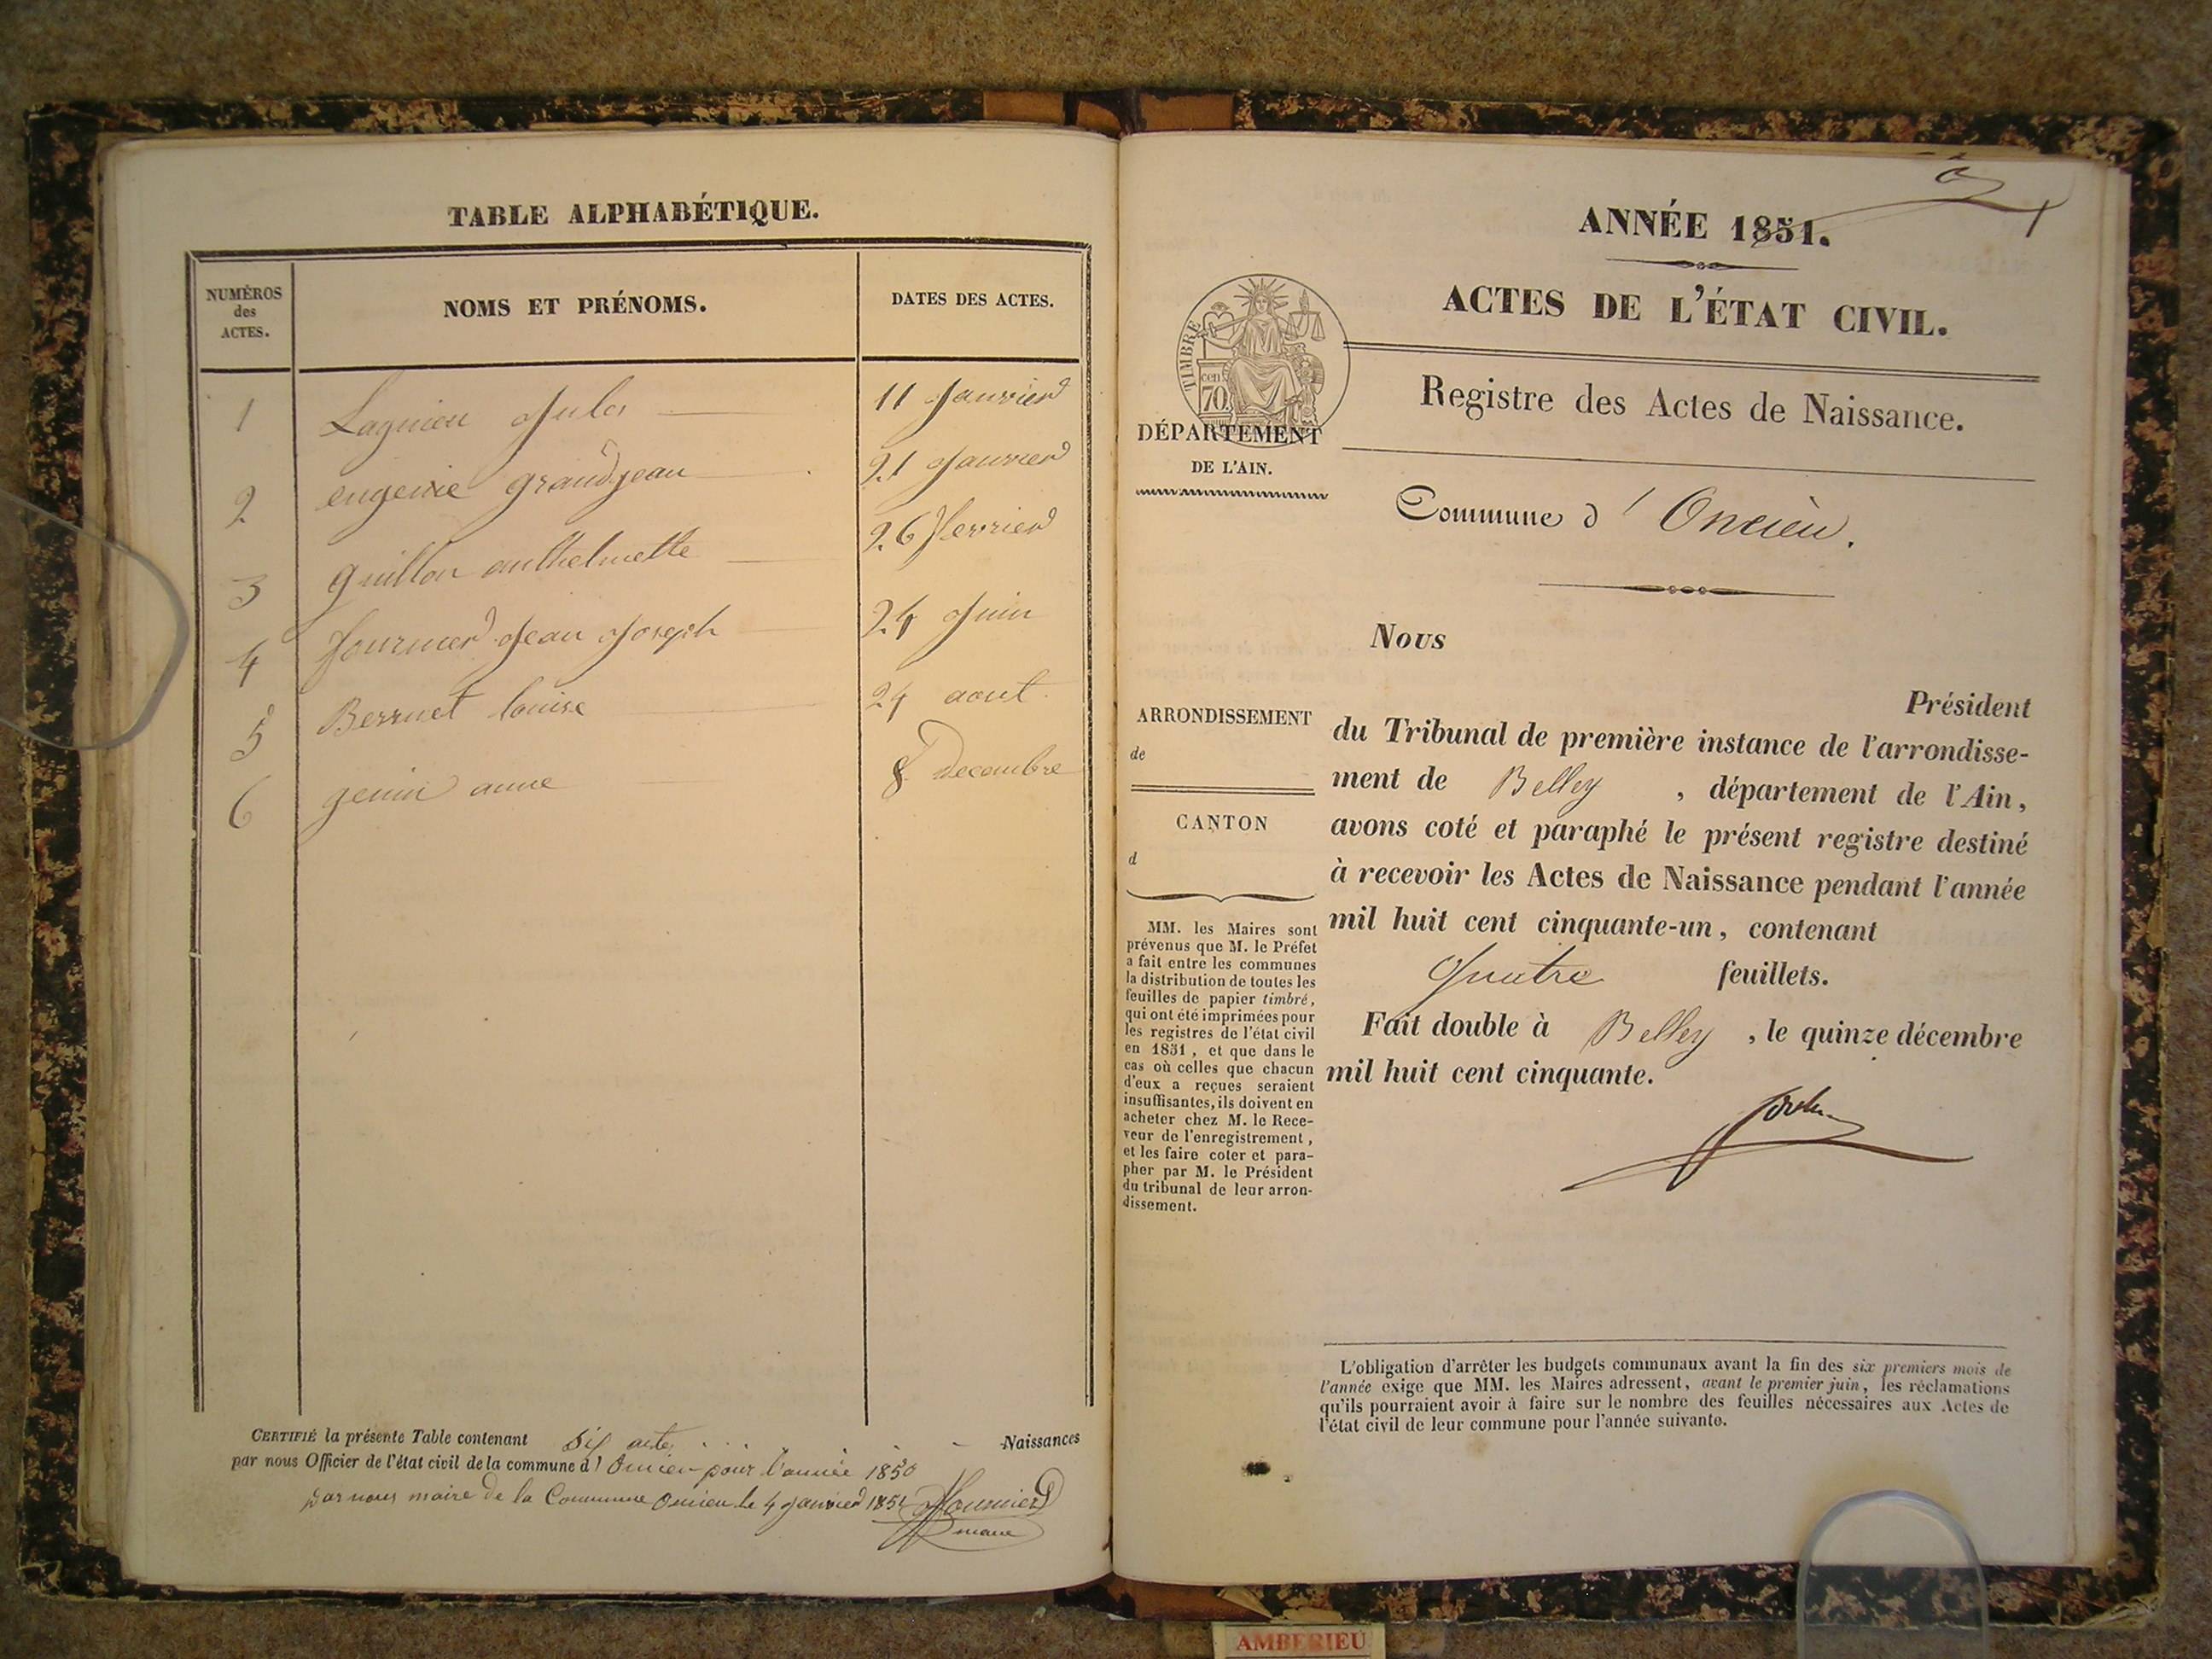 TABLE ALPHABÉTIQUE.
NUMÉROS
des
ACTES.
NOMS ET PRÉNOMS.
DATES DES ACTES.
1 Lagnieu Jules 11 Janvier
2 eugenie grandjean 21 Janvier
3 guillon anthelmette 26 fevrier
4 fournier Jean Joseph 24 Juin
5 Berruet louise 24 aout
6 genin anne 8 decembre
CERTIFIÉ la présente Table contenant Six acte Naissances
par nous Officier de l'état civil de la commune d' Oncieu pour l'année 1850
par nous maire de la Commune Oncieu le 4 Janvier 1851 fournier
maire
ANNÉE 1851.
ACTES DE L'ÉTAT CIVIL.
TIMBRE
cen
70.
Registre des Actes de Naissance.
DÉPARTEMENT
DE L'AIN.
Commune d' Oncieu.
Nous
Président
du Tribunal de première instance de l'arrondisse-
ment de Belley, département de l'Ain,
avons coté et paraphé le présent registre destiné
à recevoir les Actes de Naissance pendant l'année
mil huit cent cinquante-un, contenant
Quatre feuillets.
Fait double à Belley, le quinze décembre
mil huit cent cinquante.
ARRONDISSEMENT
de
CANTON
d
MM. les Maires sont
prévenus que M. le Préfet
a fait entre les communes
la distribution de toutes les
feuilles de papier timbré,
qui ont été imprimées pour
les registres de l'état civil
en 1851, et que dans le
cas où celles que chacun
d'eux a reçues seraient
insuffisantes, ils doivent en
acheter chez M. le Rece-
veur de l'enregistrement,
et les faire coter et para-
pher par M. le Président
du tribunal de leur arron-
dissement.
L'obligation d'arrêter les budgets communaux avant la fin des six premiers mois de
l'année exige que MM. les Maires adressent, avant le premier juin, les réclamations
qu'ils pourraient avoir à faire sur le nombre des feuilles nécessaires aux Actes de
l'état civil de leur commune pour l'année suivante.
AMBERIEU